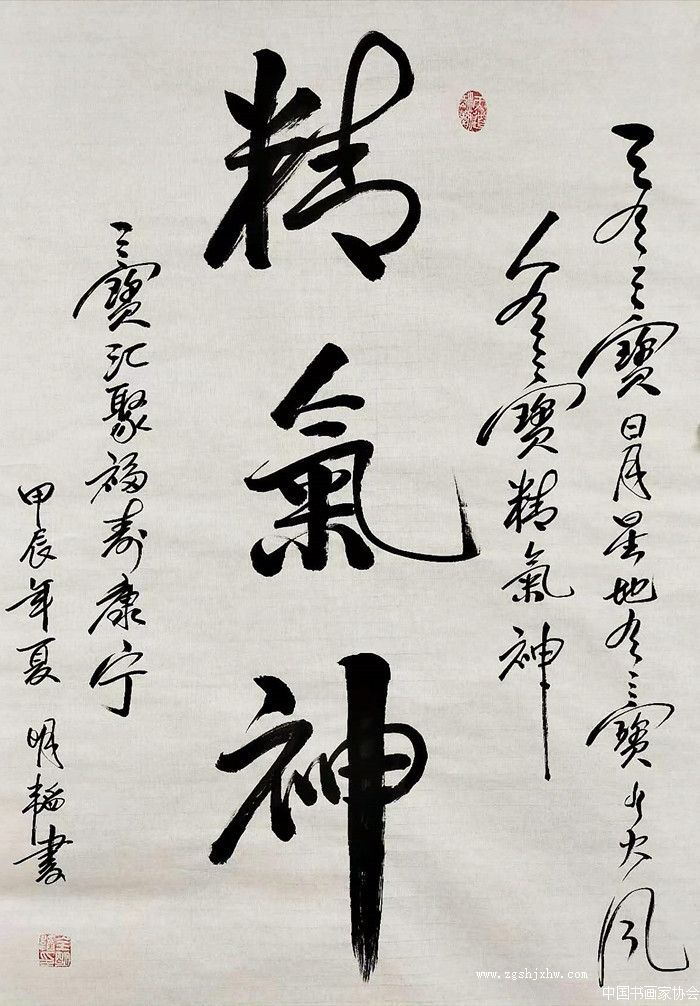 天有三寶日月星地有三寶水火风
人有三寶精氣神
精氣神
三寶汇聚福寿康宁
甲辰年夏 明韬書
www.zgshjxhw.com
中国书画家协会